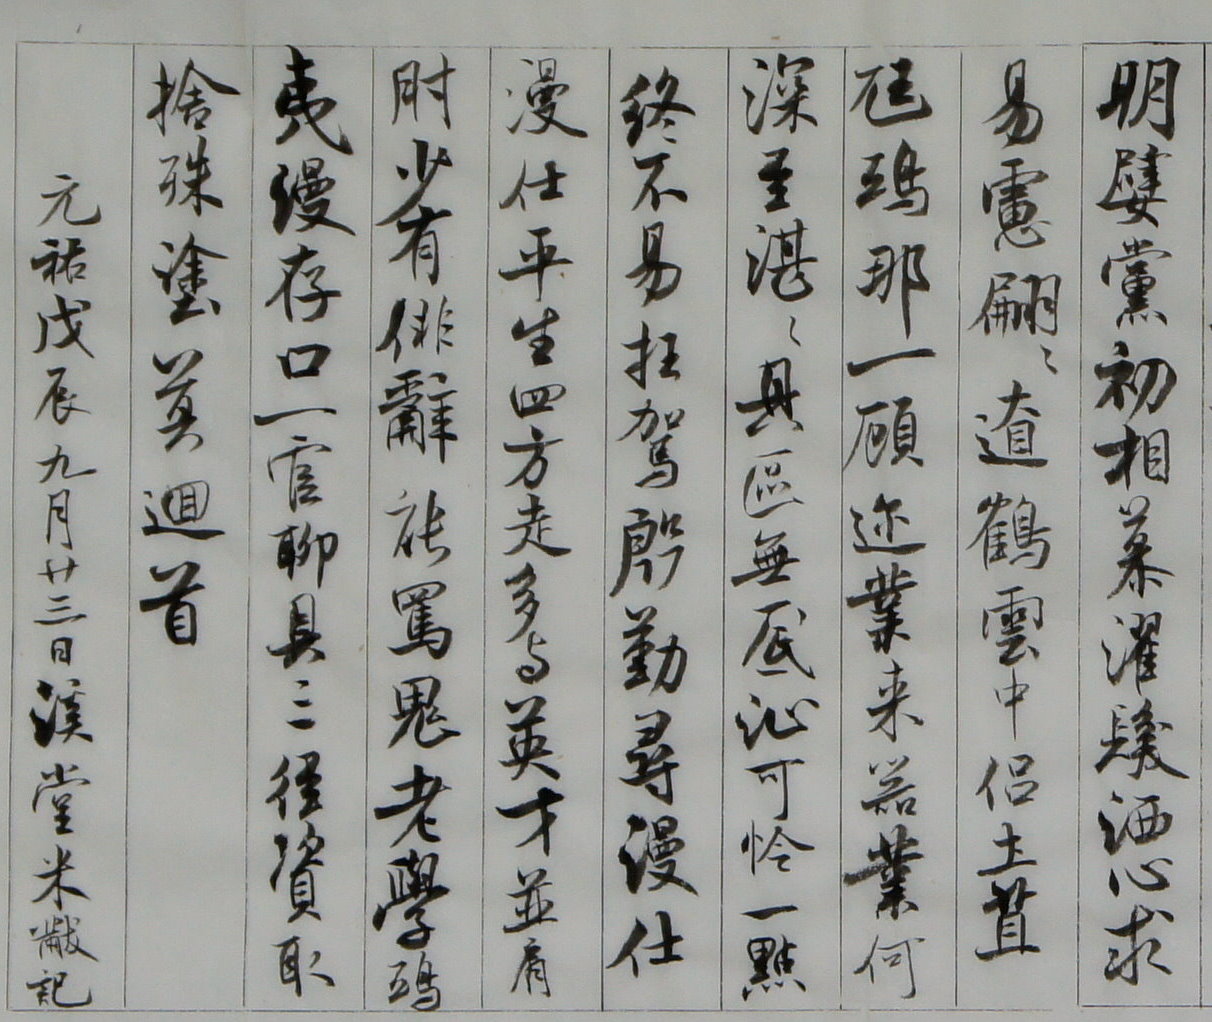 明嬖黨初相慕濯髮洒心求
易慮翩〻遼鶴雲中侶土苴
尫鴟那一顧迩業来器業何
深至湛〻具區無底沚可怜一點
終不易枉駕殷勤尋漫仕
漫仕平生四方走多与英才並肩
肘少有俳辭能罵鬼老學鴟
夷漫存口一官聊具三徑資取
捨殊塗莫迴首
元祐戊辰九月廿三日溪堂米黻記